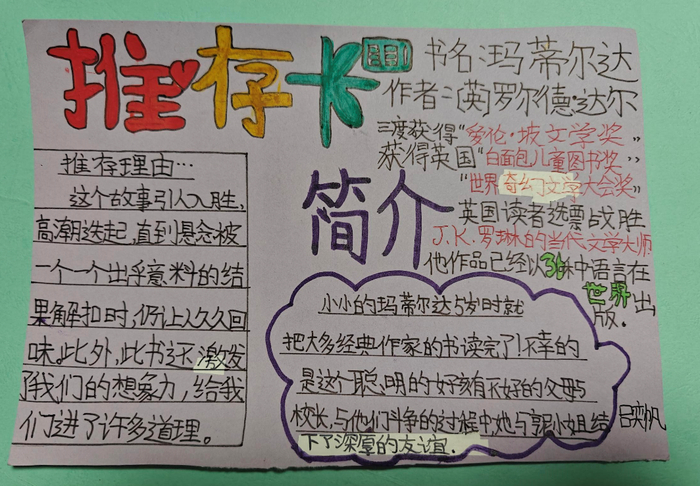 推存卡
书名:玛蒂尔达
作者:(英)罗尔德·达尔
三度获得“爱伦·坡文学奖”
获得英国“白面包儿童图书奖”
“世界奇幻文学大会奖”
英国读者选票战胜
J.K.罗琳的当代文学大师
他作品已经以34种语言在
世界出
版.
推存理由…
这个故事引人入胜,
高潮迭起,直到悬念被
一个一个出乎意料的结
果解扣时,仍让人久久回
味。此外,此书还激发
了我们的想象力,给我
们进了许多道理。
简介
小小的玛蒂尔达5岁时就
把大多经典作家的书读完了!不幸的
是这个聪明的女孩有不好的父母与
校长,与他们斗争的过程中,她与郭小姐结
下了深厚的友谊.
吕奕帆